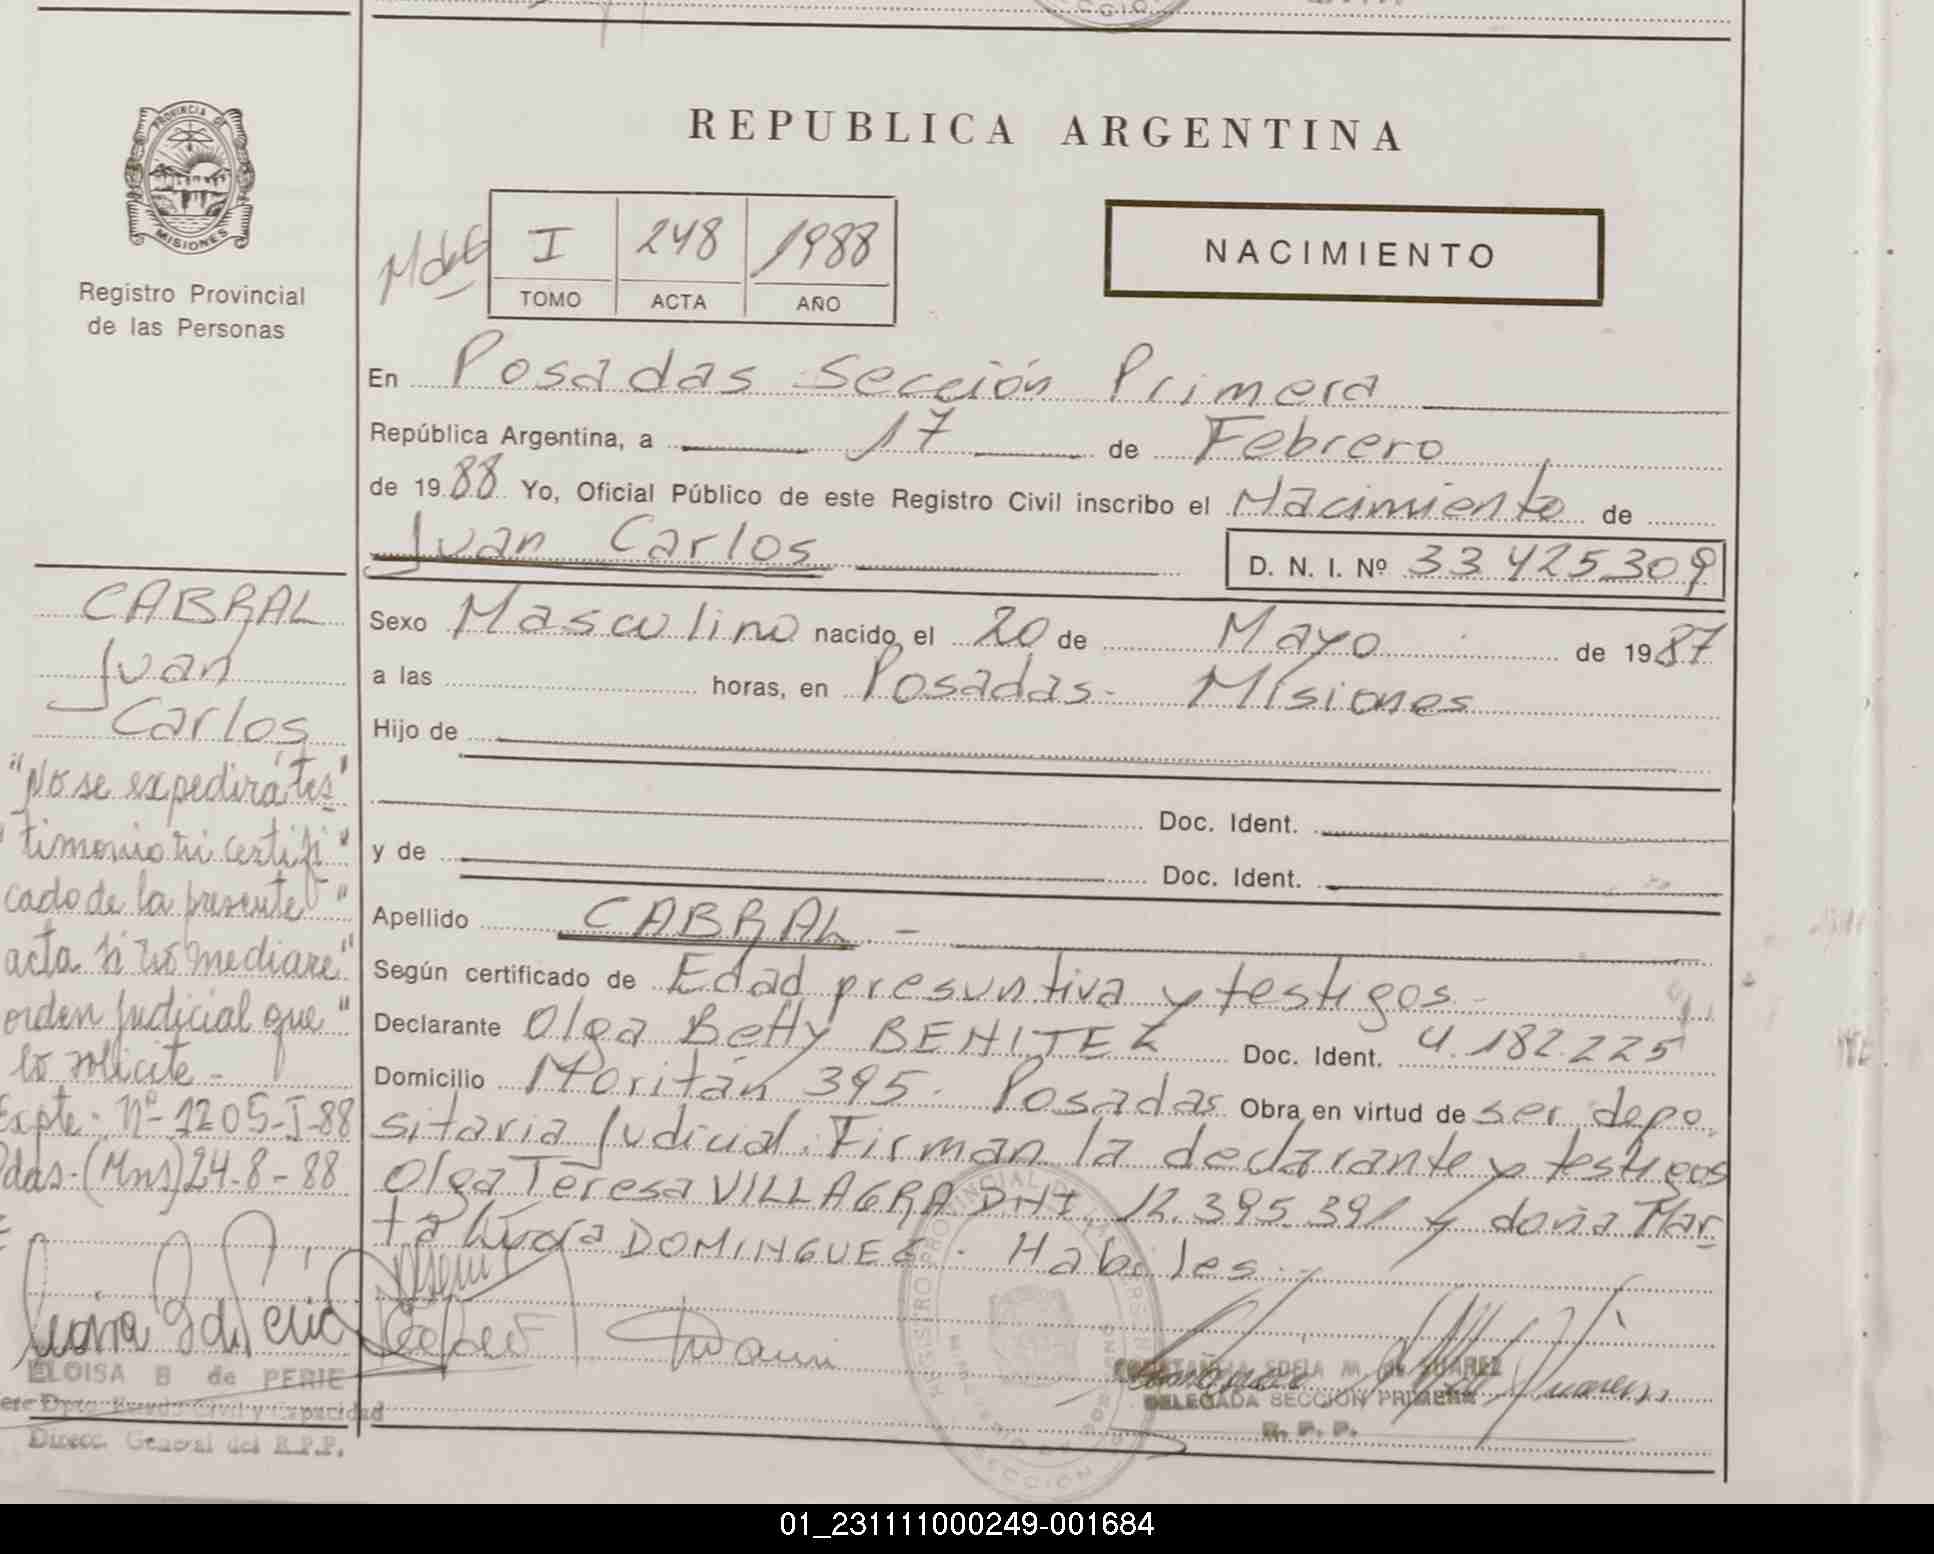 REPUBLICA ARGENTINA
PROVINCIA DE
MISIONES
Registro Provincial
de las Personas
I 248 1988
TOMO ACTA AÑO
NACIMIENTO
En Posadas Sección Primera
República Argentina, a 17 de Febrero
de 1988 Yo, Oficial Público de este Registro Civil inscribo el Nacimiento de
Juan Carlos D. N. I. Nº 33 425 309
Sexo Masculino nacido el 20 de Mayo de 1987
a las horas, en Posadas - Misiones
Hijo de
Doc. Ident.
y de
Doc. Ident.
Apellido CABRAL. -
Según certificado de Edad presuntiva y testigos -
Declarante Olga Betty BENITEZ Doc. Ident. 4.182.225
Domicilio Moritán 395. Posadas Obra en virtud de ser depo
sitaria Judicial. Firman la declarante y testigos
Olga Teresa VILLAGRA DNI 12.395.391 y doña Mar
ta DOMINGUEZ. Habiles. -
CABRAL
Juan
Carlos
"No se expedirá tes"
"timonio ni certifi"
cado de la presente"
acta si no mediare"
orden Judicial que"
lo solicite -
Expte. Nº 1205-I-88
Pdas. (Mns) 24-8-88
ELOISA B de PERIE
Dpto. Estado Civil y Capacidad
Direcc. General del R.P.P.
SUAREZ
DELEGADA SECCION PRIMERA
R. P. P.
01_231111000249-001684